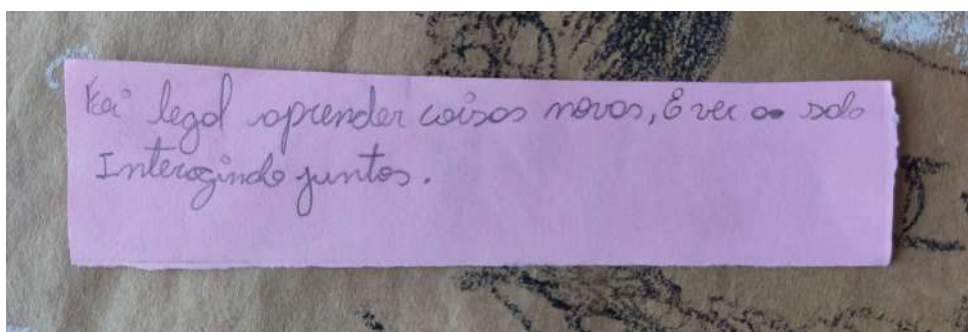 Foi legal aprender coisas novas, E ver a sala
Interagindo juntos.